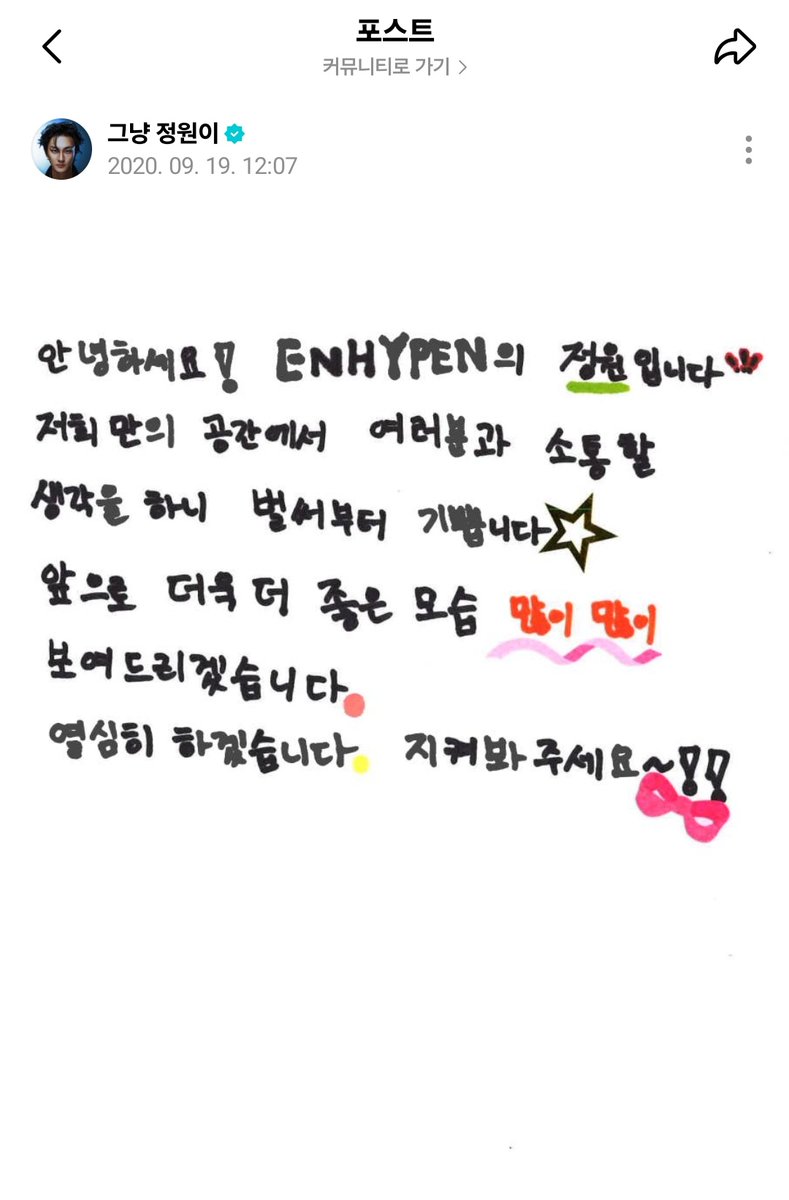 포스트
커뮤니티로 가기 >
그냥 정원이
2020. 09. 19. 12:07
안녕하세요! ENHYPEN의 정원입니다
저희만의 공간에서 여러분과 소통할
생각을 하니 벌써부터 기쁩니다
앞으로 더욱 더 좋은 모습 많이 많이
보여드리겠습니다.
열심히 하겠습니다. 지켜봐 주세요~!!